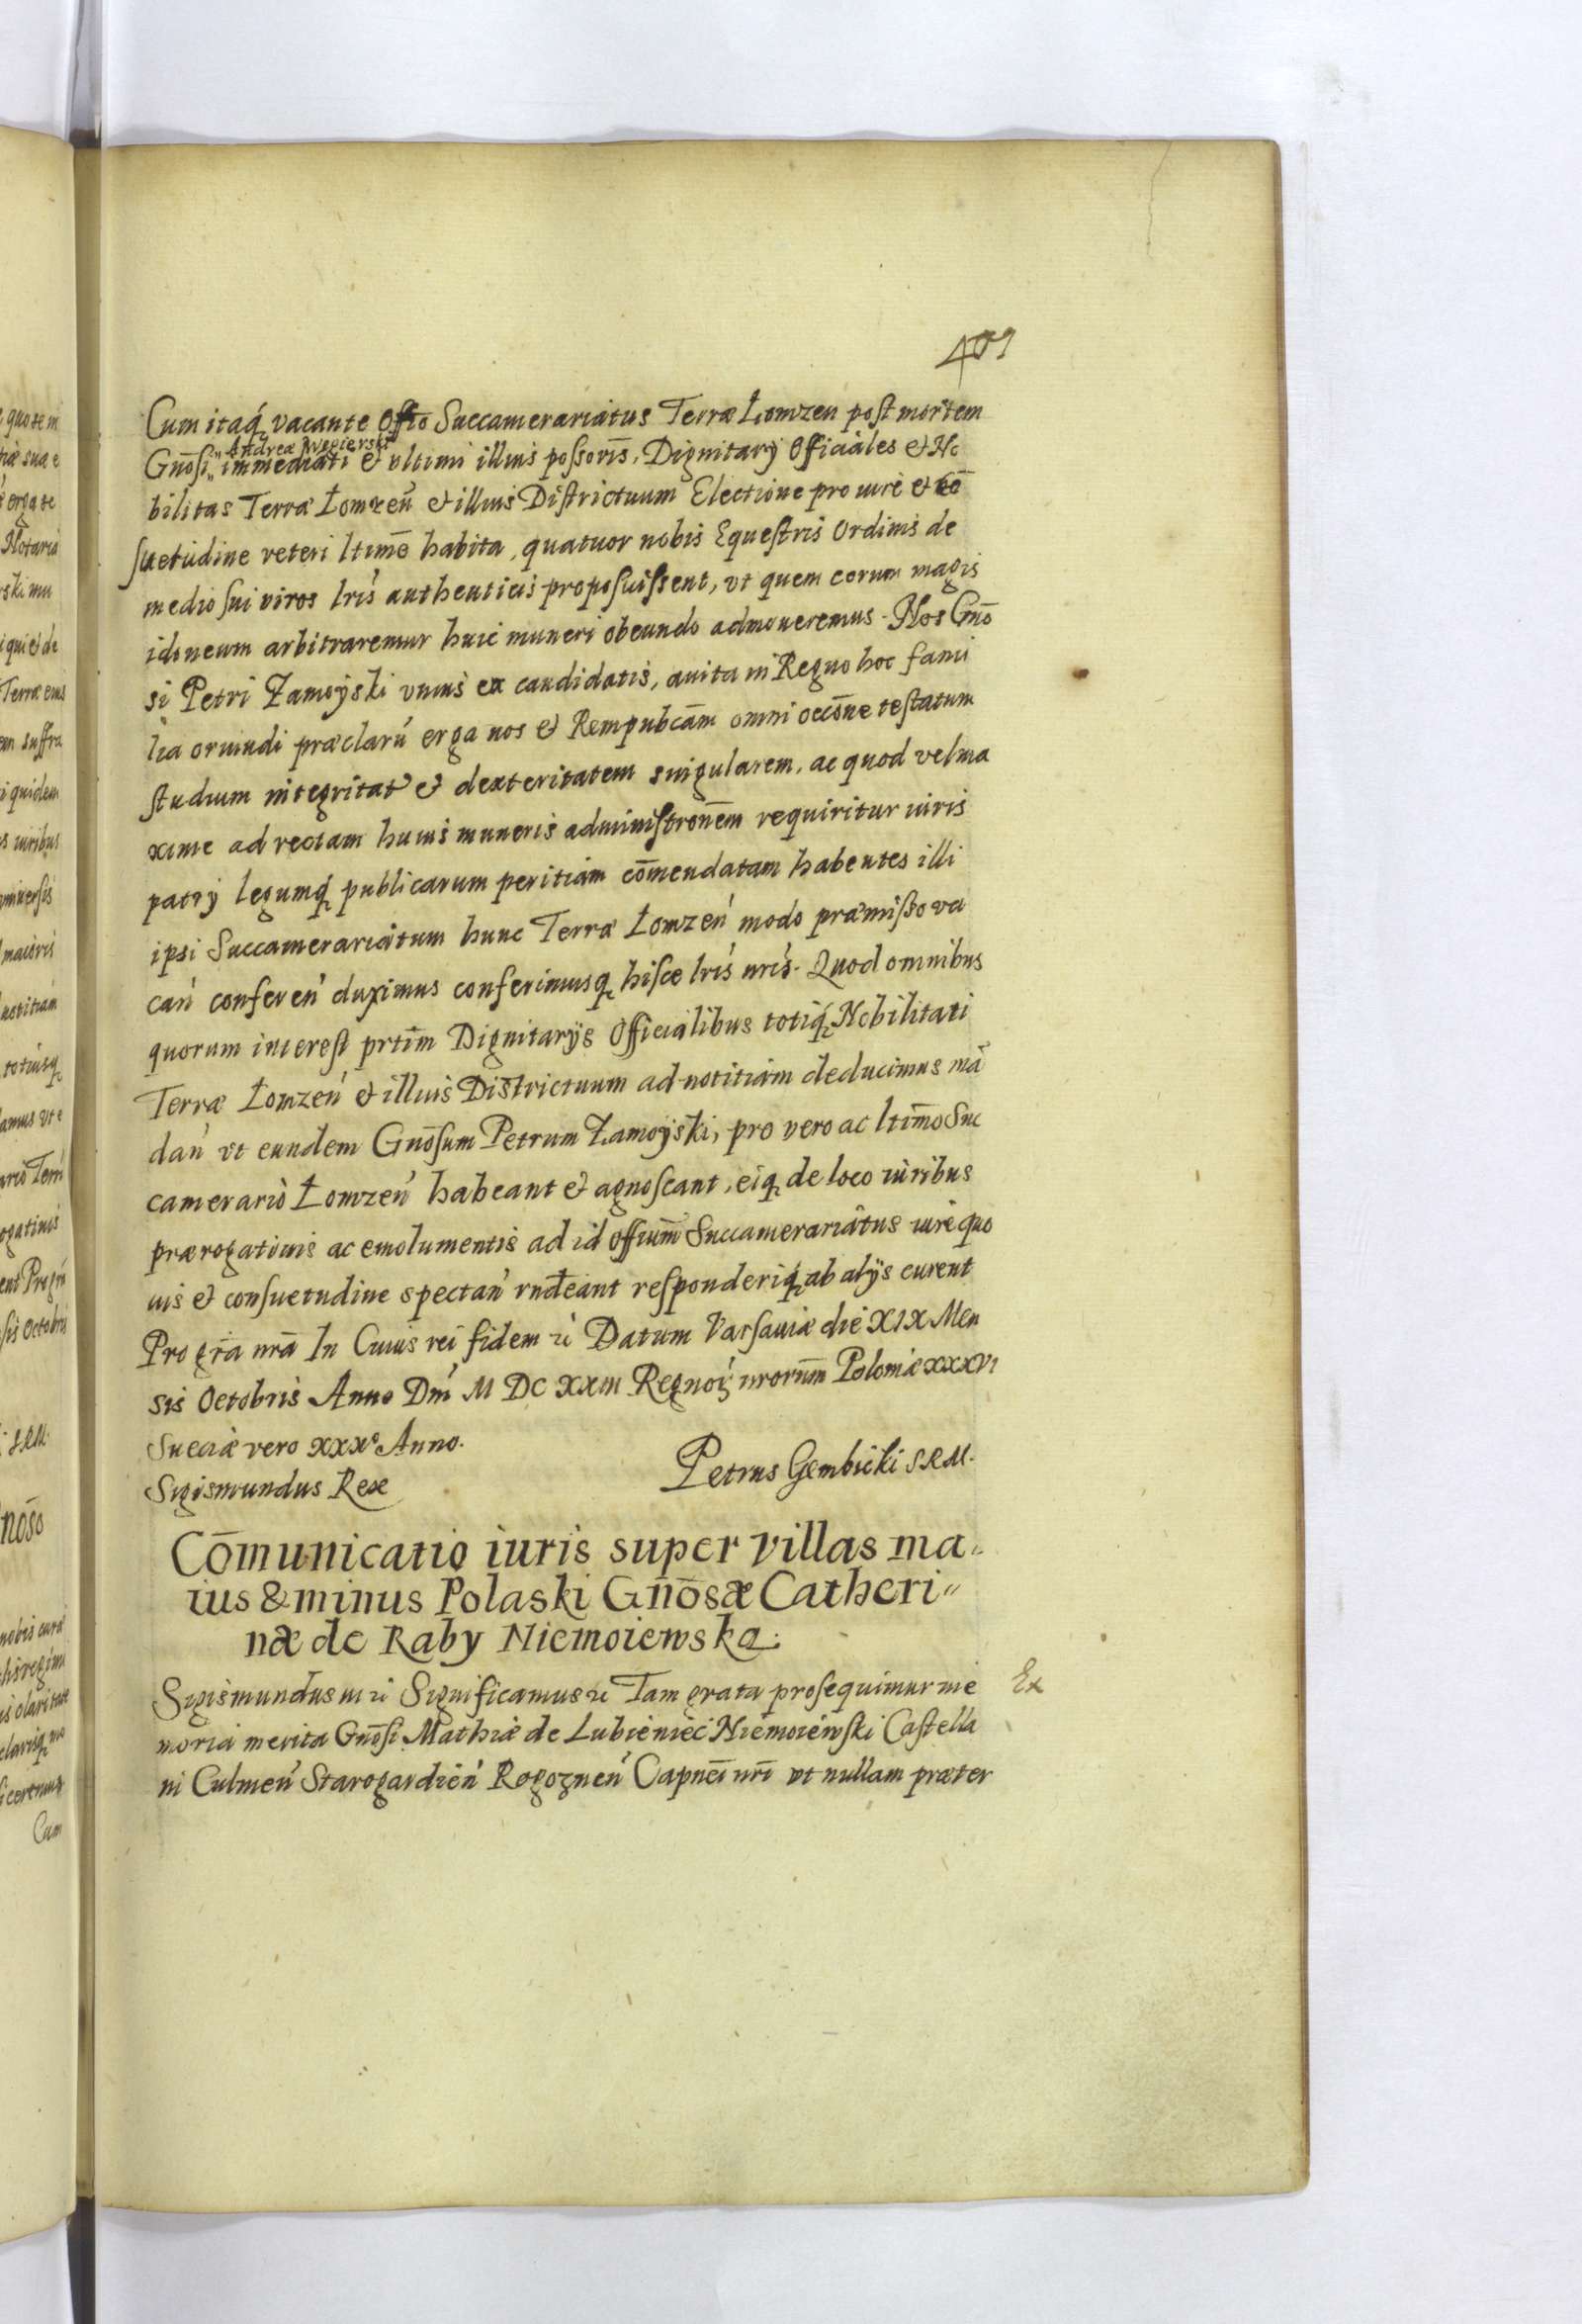 401
Cum itaq́ vacante Offto Succamerariatus Terræ Łomzen post mortem
Andreæ Wegierski
Gnōsi immediati & ultimi illius possoris, Dignitarÿ Officiales & No
bilitas Terræ Łomzeń & illius Districtuum Electione pro iure & cō
suetudine veteri ltimē habita, quatuor nobis Equestris Ordinis de
medio sui viros lris authenticis proposuissent, vt quem eorum magis
idoneum arbitraremur huic muneri obeundo admoueremus. Nos Gnō
si Petri Zamoÿski vnius ex candidatis, auita in Regno hoc fami
lia oriundi præclarū erga nos & Rempubcām omni occōne testatum
studium integritatē & dexteritatem singularem, ac quod vel ma
xime ad rectam huius muneris administronēm requiritur iuris
patrÿ legumq́ publicarum peritiam cōmendatam habentes illi
ipsi Succamerariatum hunc Terræ Łomzeń modo præmisso va
cań confereń duximus conferimusq, hisce lris nris. Quod omnibus
quorum interest prtim̄ Dignitarÿs Officialibus totiq́ Nobilitati
Terræ Łomzeń & illius Districtuum ad notitiam deducimus mā
dań vt eundem Gnōsum Petrum Zamoÿski, pro vero ac ltim̄o Suc
camerario Łomzeń habeant & agnoscant, eiq, de loco iuribus
prærogatiuis ac emolumentis ad id offium̄ Succamerariatus iure quo
uis & consuetudine spectań rndeant responderiq́ ab alÿs curent
Pro grā nrā In Cuius rei fidem Datum Varsauiæ die XIX Men
sis Octobris Anno Dnī M DC XXIII Regnoꝝ nrorum̄ Poloniæ XXXVI
Sueciæ vero XXXº Anno.
Sigismundus Rex
Petrus Gembicki S R M.
Cōmunicatio iuris super villas ma„
ius & minus Polaski Gñōsæ Catheri„
næ de Raby Niemoiewska.
Sigismundus III Significamus Tam grata prosequimur me
Ex
moria merita Gnōsi Mathiæ de Lubieniec Niemoiewski Castella
ni Culmeń Starogardień Rogozneń Capnēi nrī vt nullam præter